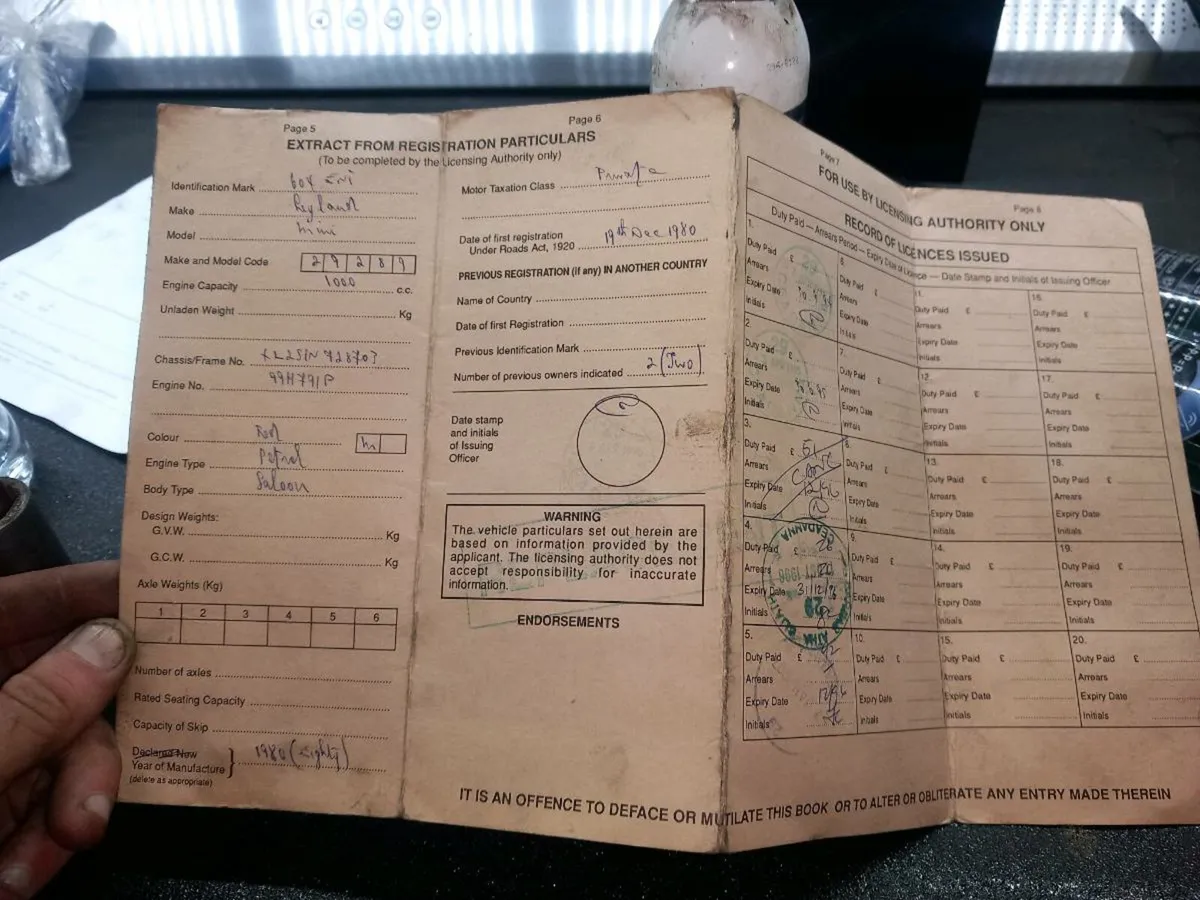 Page 5
EXTRACT FROM REGISTRATION PARTICULARS
(To be completed by the Licensing Authority only)
Identification Mark
Make Leyland
Model Mini
Make and Model Code 29289
Engine Capacity 1000 c.c.
Unladen Weight Kg
Chassis/Frame No.
Engine No. 99H791P
Colour Red
Engine Type Petrol
Body Type Saloon
Design Weights:
G.V.W. Kg
G.C.W. Kg
Axle Weights (Kg)
1 2 3 4 5 6
Number of axles
Rated Seating Capacity
Capacity of Skip
Declared New
Year of Manufacture } 1980 (Eighty)
(delete as appropriate)
Page 6
Motor Taxation Class Private
Date of first registration
Under Roads Act, 1920 19th Dec 1980
PREVIOUS REGISTRATION (if any) IN ANOTHER COUNTRY
Name of Country
Date of first Registration
Previous Identification Mark
Number of previous owners indicated 2 (Two)
Date stamp
and initials
of Issuing
Officer
WARNING
The vehicle particulars set out herein are
based on information provided by the
applicant. The licensing authority does not
accept responsibility for inaccurate
information.
ENDORSEMENTS
Page 7
Page 8
FOR USE BY LICENSING AUTHORITY ONLY
RECORD OF LICENCES ISSUED
Duty Paid — Arrears Period — Expiry Date of Licence — Date Stamp and Initials of Issuing Officer
1.
Duty Paid £
Arrears
Expiry Date
Initials
2.
Duty Paid £
Arrears
Expiry Date
Initials
3.
Duty Paid 51
Arrears
Expiry Date 12/96
Initials
4.
Duty Paid £
Arrears
Expiry Date 31/12/96
Initials
5.
Duty Paid £ 92
Arrears
Expiry Date 12/96
Initials
6.
Duty Paid £
Arrears
Expiry Date
Initials
7.
Duty Paid £
Arrears
Expiry Date
Initials
8.
Duty Paid £
Arrears
Expiry Date
Initials
9.
Duty Paid £
Arrears
Expiry Date
Initials
10.
Duty Paid £
Arrears
Expiry Date
Initials
11.
Duty Paid £
Arrears
Expiry Date
Initials
12.
Duty Paid £
Arrears
Expiry Date
Initials
13.
Duty Paid £
Arrears
Expiry Date
Initials
14.
Duty Paid £
Arrears
Expiry Date
Initials
15.
Duty Paid £
Arrears
Expiry Date
Initials
16.
Duty Paid £
Arrears
Expiry Date
Initials
17.
Duty Paid £
Arrears
Expiry Date
Initials
18.
Duty Paid £
Arrears
Expiry Date
Initials
19.
Duty Paid £
Arrears
Expiry Date
Initials
20.
Duty Paid £
Arrears
Expiry Date
Initials
IT IS AN OFFENCE TO DEFACE OR MUTILATE THIS BOOK OR TO ALTER OR OBLITERATE ANY ENTRY MADE THEREIN